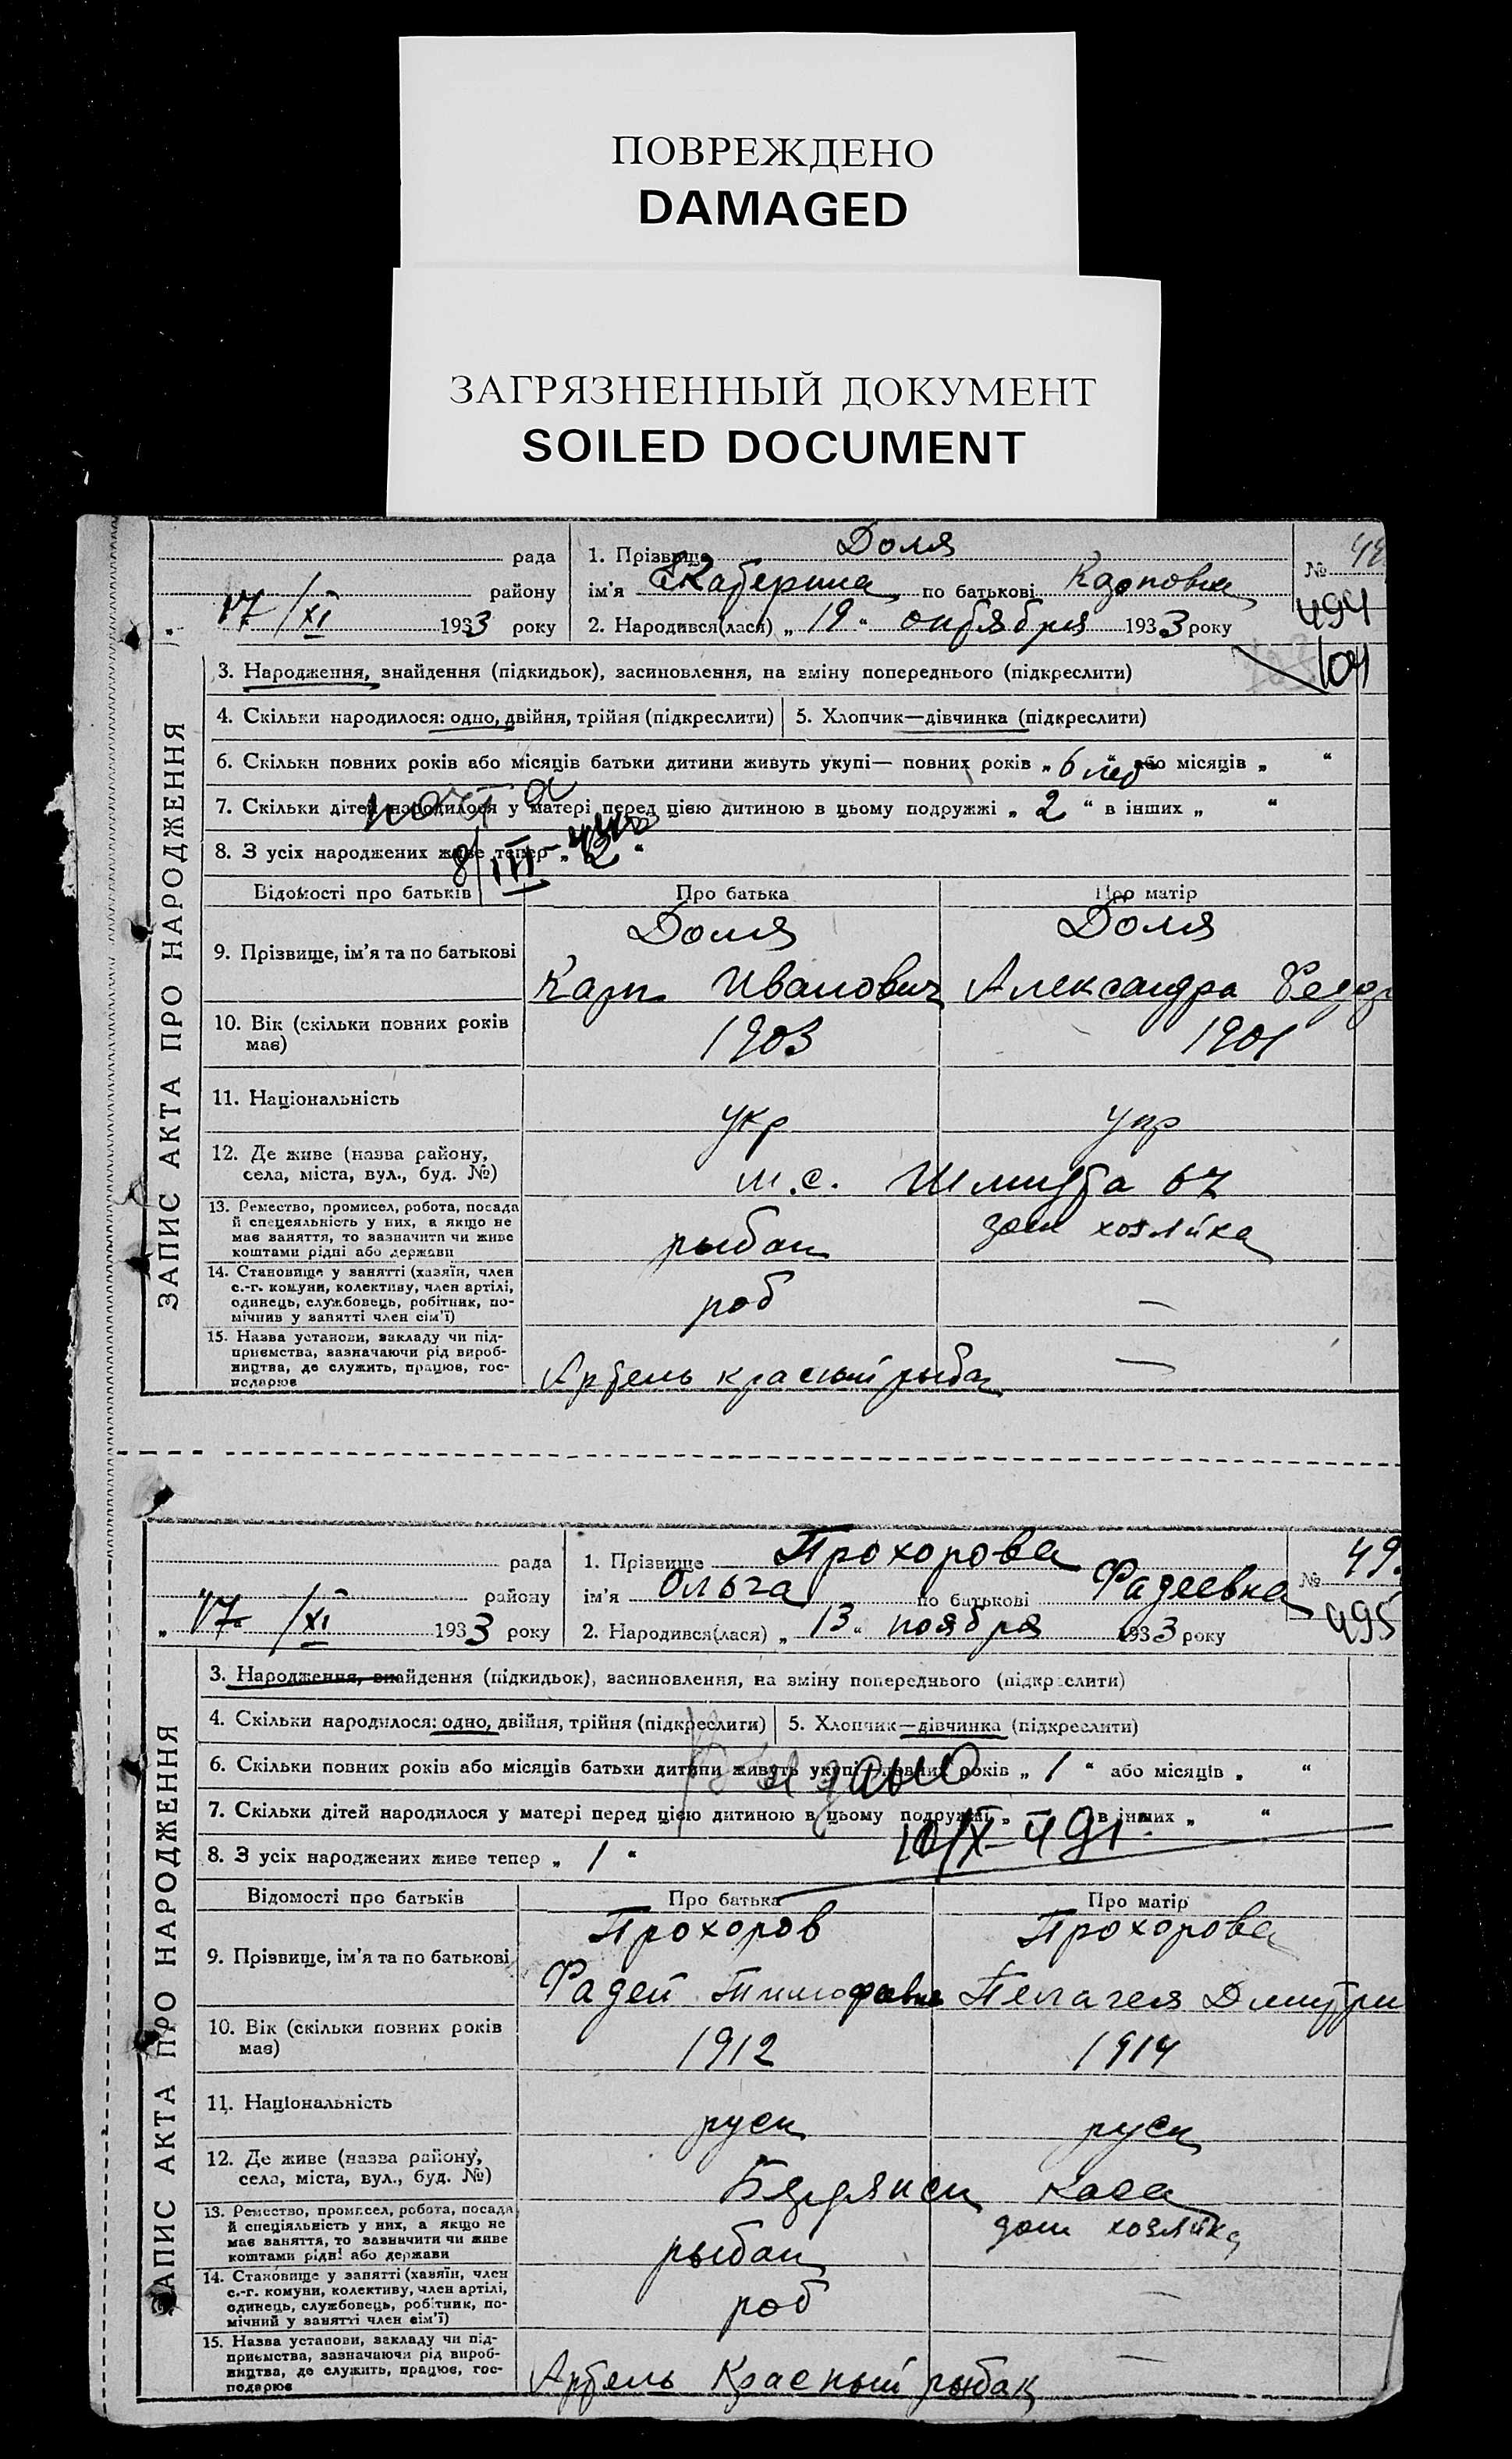 ПОВРЕЖДЕНО
DAMAGED
ЗАГРЯЗНЕННЫЙ ДОКУМЕНТ
SOILED DOCUMENT
рада
району
17/XI 1933 року
1. Прізвище Доля
ім'я Екатерина по батькові Карповна
2. Народився(лася) „ 19 “ октября 1933 року
№
494
104
ЗАПИС АКТА ПРО НАРОДЖЕННЯ
3. Народження, знайдення (підкидьок), засиновлення, на зміну попереднього (підкреслити)
4. Скільки народилося: одно, двійня, трійня (підкреслити) 5. Хлопчик—дівчинка (підкреслити)
6. Скільки повних років або місяців батьки дитини живуть укупі— повних років „ 6 лет або місяців „ “
7. Скільки дітей народилося у матері перед цією дитиною в цьому подружжі „ 2 “ в інших „ “
8. З усіх народжених живе тепер „ 2 “
8/III-
Відомості про батьків Про батька Про матір
9. Прізвище, ім'я та по батькові
Доля Доля
Карп Иванович Александра
10. Вік (скільки повних років має)
1903 1901
11. Національність
укр укр
12. Де живе (назва району, села, міста, вул., буд. №)
Шмидта 67
13. Ремество, промисел, робота, посада
й спецеяльність у них, а якщо не
має заняття, то зазначити чи живе
коштами рідні або держави
рыбак дом хозяйка
14. Становище у занятті (хазяїн, член
с.-г. комуни, колективу, член артілі,
одинець, службовець, робітник, по-
мічник у занятті член сім'ї)
роб —
15. Назва установи, закладу чи під-
приємства, зазначаючи рід вироб-
ництва, де служить, працює, гос-
подарює
Артель красный рыбак —
рада
району
„ 17/XI 1933 року
1. Прізвище Прохорова
ім'я Ольга по батькові Фадеевна
2. Народився(лася) „ 13 “ ноября 1933 року
№ 49
495
ЗАПИС АКТА ПРО НАРОДЖЕННЯ
3. Народження, знайдення (підкидьок), засиновлення, на зміну попереднього (підкреслити)
4. Скільки народилося: одно, двійня, трійня (підкреслити) 5. Хлопчик—дівчинка (підкреслити)
6. Скільки повних років або місяців батьки дитини живуть укупі—повних років „ 1 “ або місяців „ “
7. Скільки дітей народилося у матері перед цією дитиною в цьому подружжі „ — “ в інших „ “
8. З усіх народжених живе тепер „ 1 “
Відомості про батьків Про батька Про матір
9. Прізвище, ім'я та по батькові
Прохоров Прохорова
Фадей Пелагея Дмитри
10. Вік (скільки повних років має)
1912 1914
11. Національність
руск руск
12. Де живе (назва району, села, міста, вул., буд. №)
Бердянск коса
13. Ремество, промисел, робота, посада
й спеціяльність у них, а якщо не
має заняття, то зазначити чи живе
коштами рідні або держави
рыбак дом хозяйка
14. Становище у занятті (хазяїн, член
с.-г. комуни, колективу, член артілі,
одинець, службовець, робітник, по-
мічний у занятті член сім'ї)
роб —
15. Назва установи, закладу чи під-
приємства, зазначаючи рід вироб-
ництва, де служить, працює, гос-
подарює
Артель Красный рыбак —